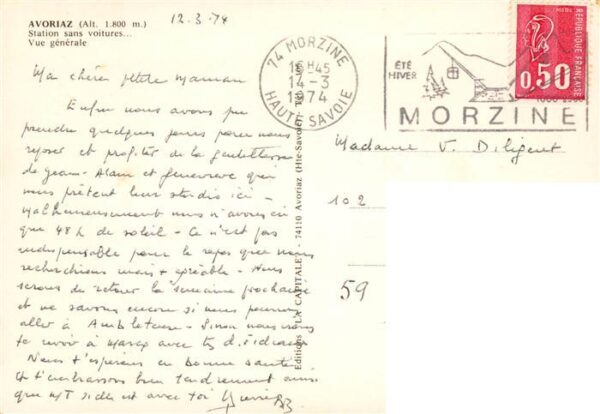 AVORIAZ (Alt. 1.800 m.)
Station sans voitures...
Vue générale
12.3.74
74 MORZINE
15H45
14-3
1974
HAUTE SAVOIE
ÉTÉ
HIVER
MORZINE
POSTES
RÉPUBLIQUE FRANÇAISE
0,50
Ma chère petite Maman
Enfin nous avons pu
prendre quelques jours pour nous
reposer et profiter de la gentillesse
de Jean-Alain et Geneviève qui
nous prêtent leur studio ici -
Malheureusement nous n'avons eu
que 48 h de soleil - Ce n'est pas
indispensable pour le repos que nous
recherchions mais + agréable - Nous
serons de retour la semaine prochaine
et ne savons encore si nous pourrons
aller à Ambleteuse - Sinon nous irons
te voir à Marcq avec
Nous t'espérons en bonne santé
et t'embrassons bien tendrement ainsi
que est avec toi Pierre
Editions "LA CAPITALE" - 74110 Avoriaz (Hte-Savoie)
Madame V. Diligent
102
59